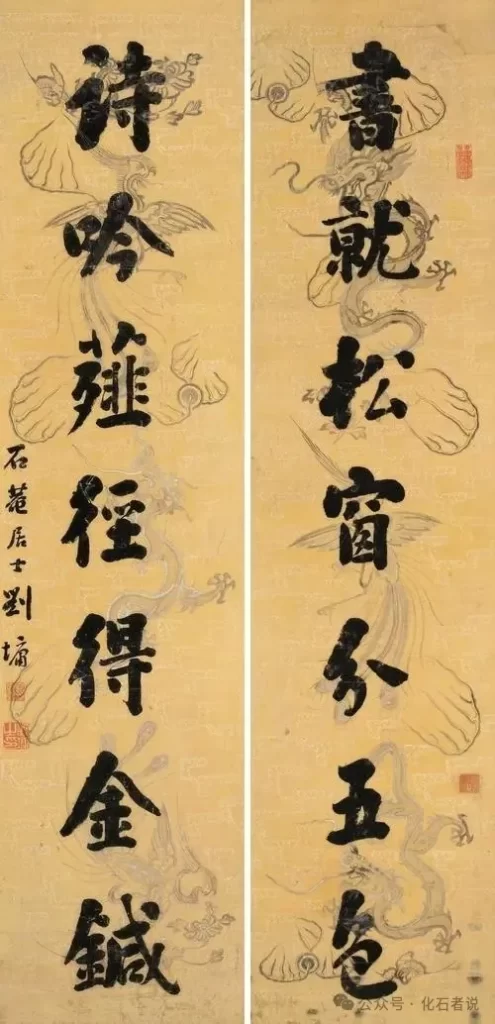 書就松窗分五色
詩吟薤徑得金鍼
石菴居士劉墉
公众号·化石者说